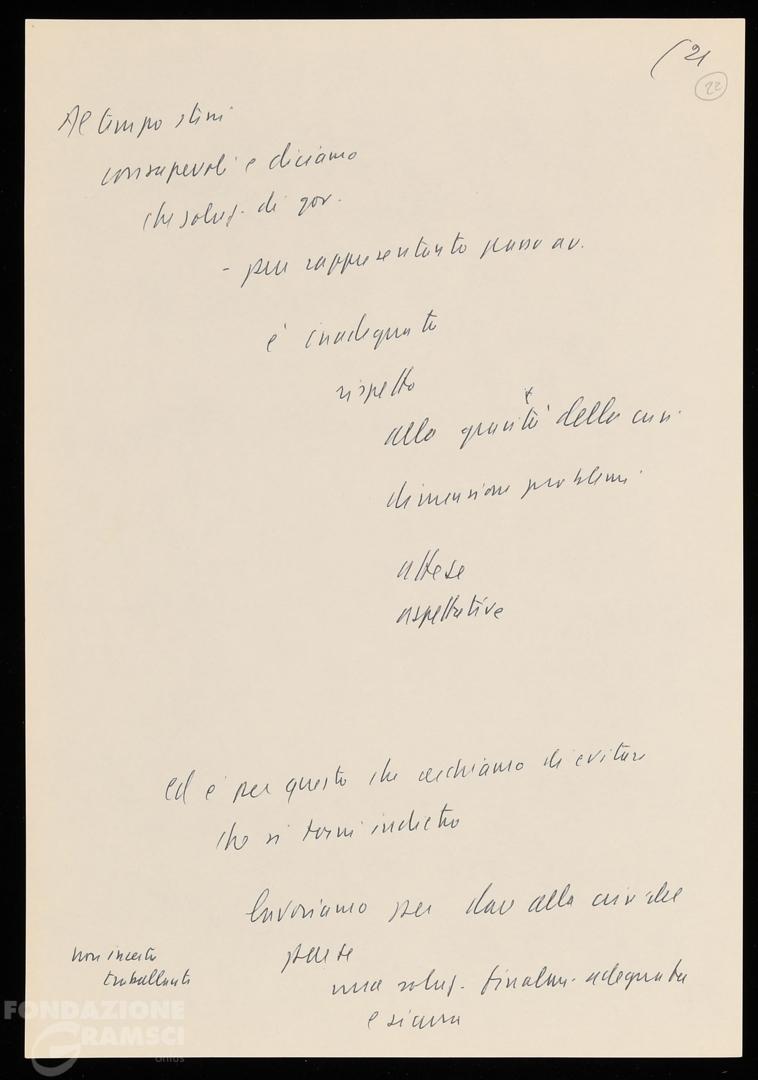 (21
22
Al tempo stesso
consapevoli e diciamo
che soluz. di gov.
- pur rappresentanto passo av.
è inadeguata
rispetto
alla gravità della crisi
dimensione problemi
attese
aspettative
Ed è per questo che cerchiamo di evitare
che si torni indietro
Lavoriamo per dare alla crisi del
paese
una soluz. finalm. adeguata
e sicura
non incerta
traballante
FONDAZIONE
GRAMSCI
onlus